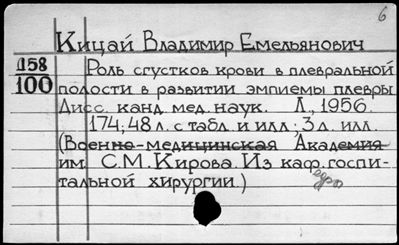 6
Кицай Владимир Емельянович
158
100
Роль сгустков крови в плевральной
полости в развитии эмпиемы плевры
Дисс. канд мед. наук. Л., 1956.
174; 48 л. с табл. и илл.; 3 л. илл.
(Военно-медицинская Академия
им. С.М. Кирова. Из каф. госпи-
тальной хирургии.)